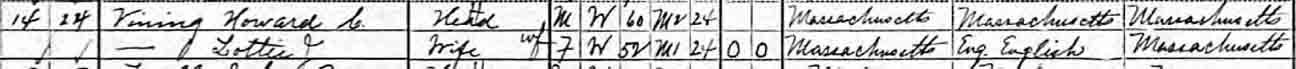 14 24 Vining Howard C. Head M W 60 M2 24 Massachusetts Massachusetts Massachusetts
— Lottie J Wife wf F W 52 M1 24 0 0 Massachusetts Eng English Massachusetts